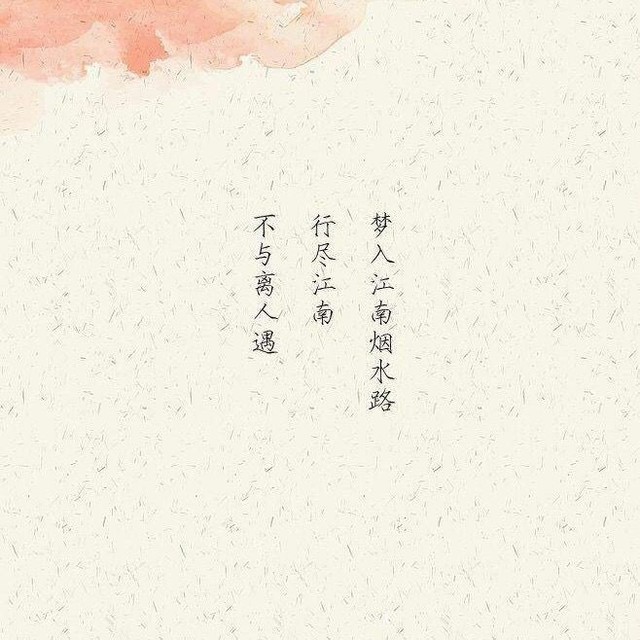 梦入江南烟水路
行尽江南
不与离人遇